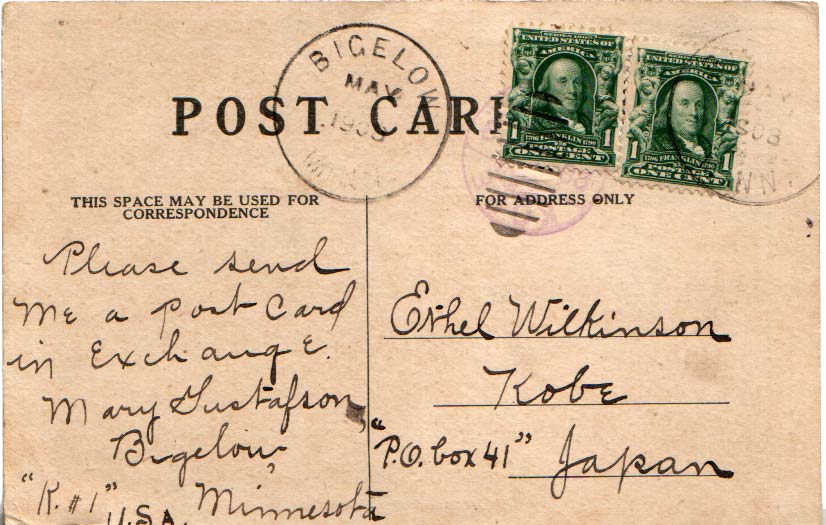 BIGELOW
MAY
1908
MINN.
POST CARD
SERIES 1902
UNITED STATES OF
AMERICA
1 1
1706 FRANKLIN 1790
POSTAGE
ONE CENT
SERIES 1902
UNITED STATES OF
AMERICA
1 1
1706 FRANKLIN 1790
POSTAGE
ONE CENT
MAY
1908
MINN.
THIS SPACE MAY BE USED FOR
CORRESPONDENCE
FOR ADDRESS ONLY
Please send
me a post Card
in Exchange.
Mary Gustafson
Bigelow
"R. #1" Minnesota
U.S.A.
Ethel Wilkinson
Kobe
"P.O. box 41" Japan